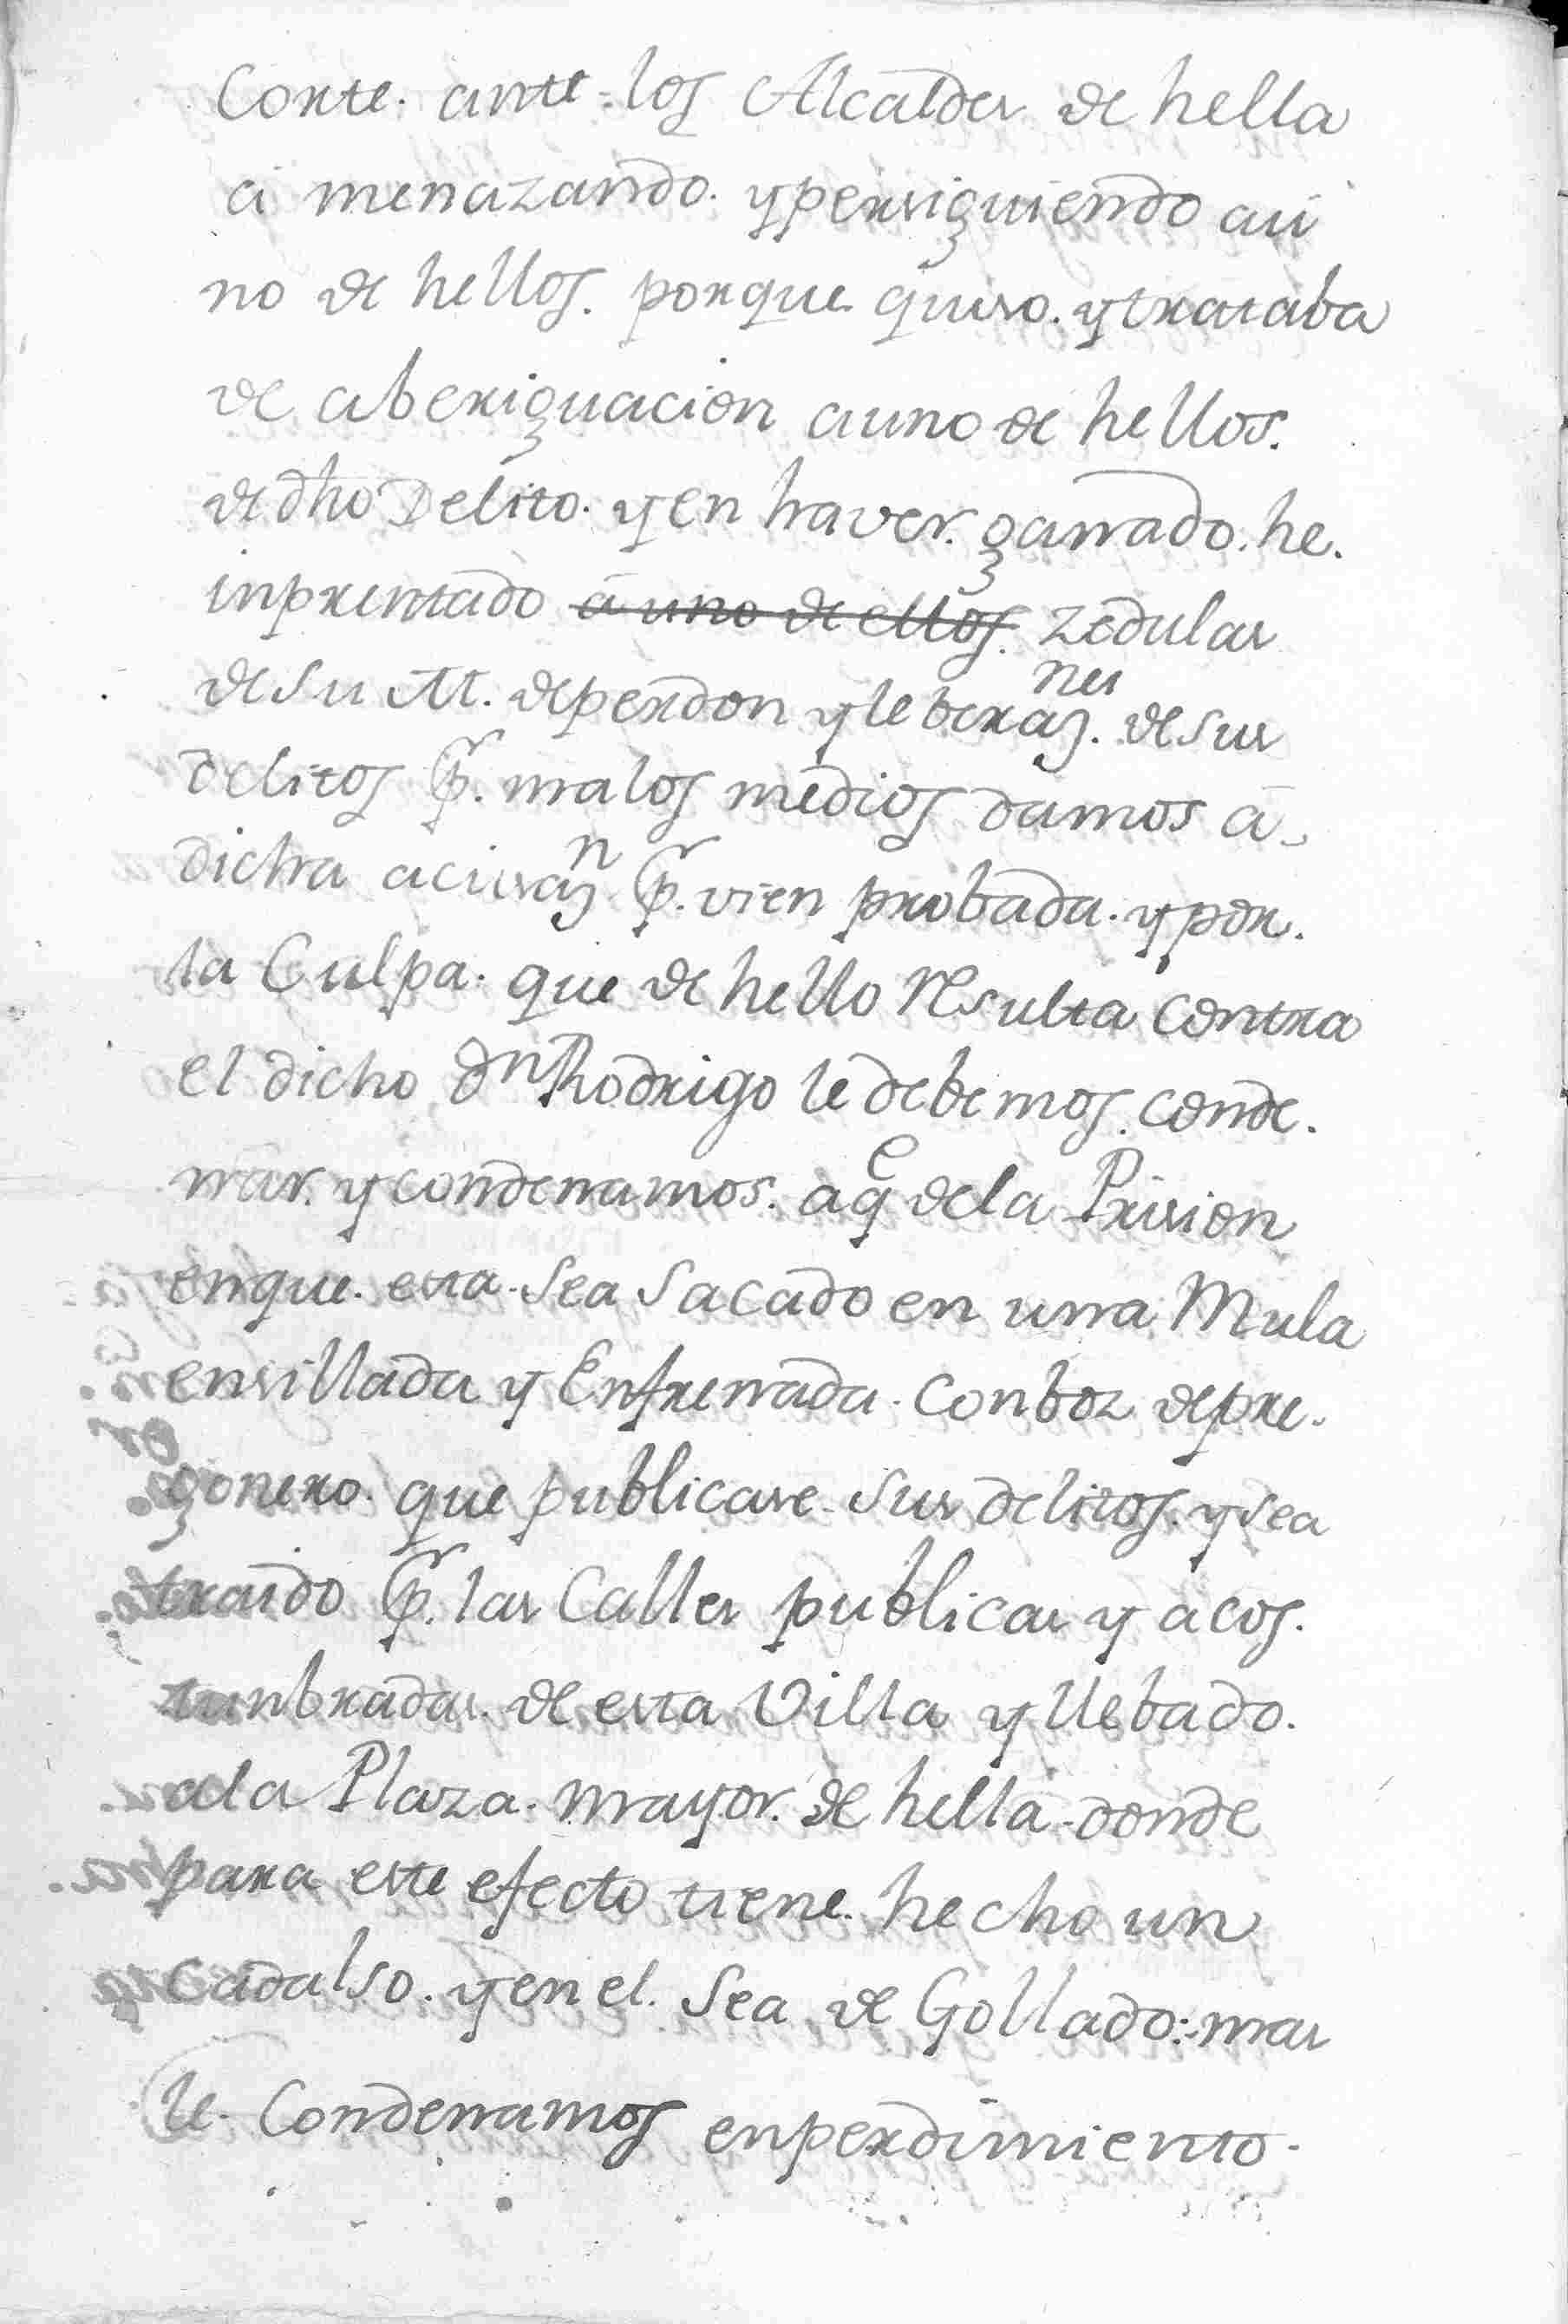 Corte. ante los Alcaldes de hella
a menazando. y persiguiendo aú
no de hellos. porque quiso. y trataba
de aberiguacion auno de hellos.
de dho Delito. y en haver. ganado. he.
inprentado ~~á uno de ellos.~~ zedulas
de su M. deperdon y leberaz.nes de sus
delitos pr. malos medios damos á
dicha acusazn pr. vien probada. y por.
la Culpa. que de hello resulta contra
el dicho Dn Rodrigo le debemos. conde.
nar. y condenamos. aqe dela Prision
enque. esta. sea sacado en una Mula
ensillada y Enfrenada. conboz depre.
gonero. que publicase sus delitos. y sea
traído pr. las Calles publicas y acos.
tunbradas. de esta Villa y llebado.
ala Plaza. mayor. de hella donde
para este efecto tiene. hecho un
cadalso. y en el. sea de Gollado: mas
le. Condenamos enperdimiento.